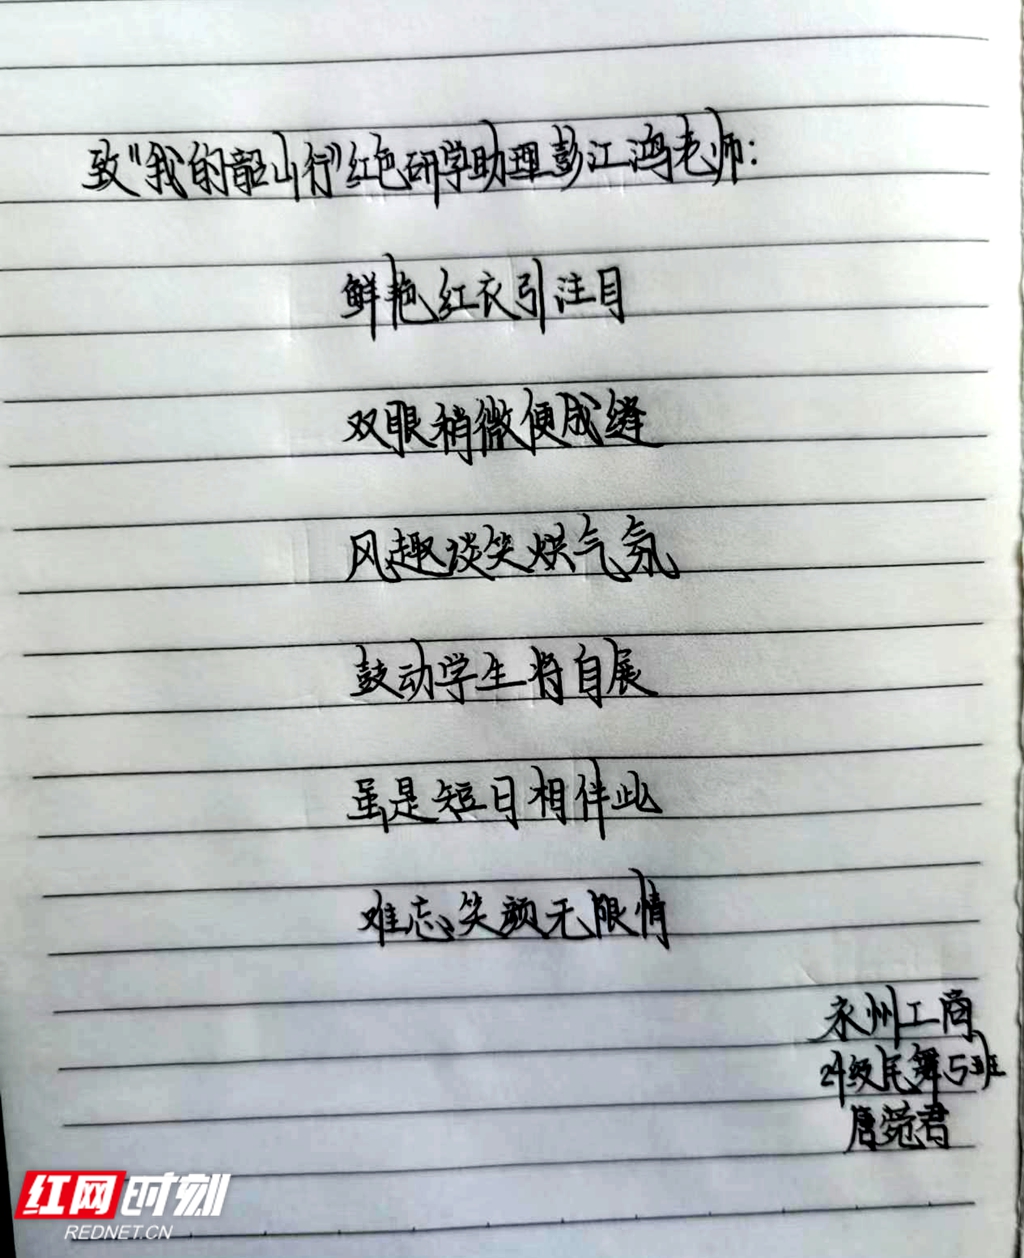 致“我的韶山行”红色研学助理彭江鸿老师：
鲜艳红衣引注目
双眼稍微便成缝
风趣谈笑烘气氛
鼓动学生将自展
虽是短日相伴此
难忘笑颜无限情
永州工商
24级民舞5班
唐菀君
红网时刻
REDNET.CN